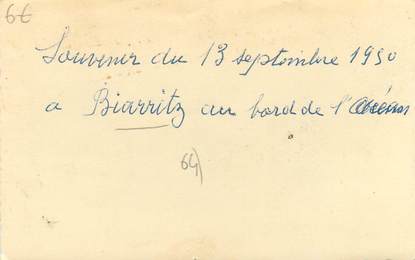 6€
Souvenir du 13 septembre 1950
a Biarritz au bord de l'océan
64)